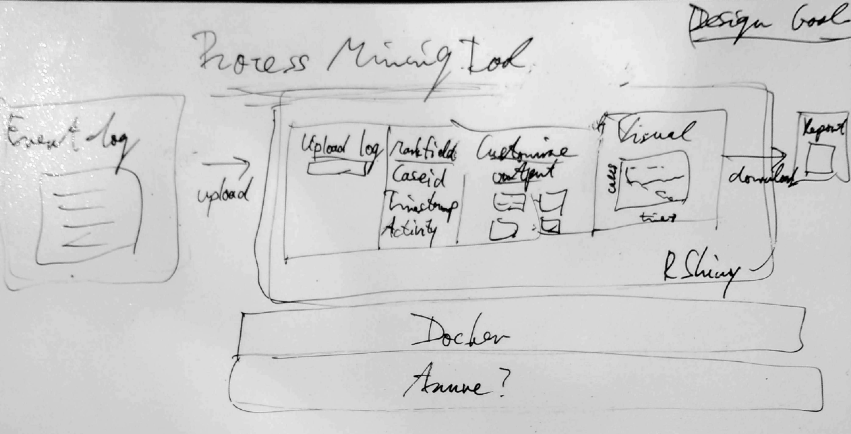 Design Goal
Process Mining Tool
Event log
upload
Upload log
Mark field
Caseid
Timestamp
Activity
Customise
output
Visual
cases
time
download
Report
R Shiny
Docker
Azure?